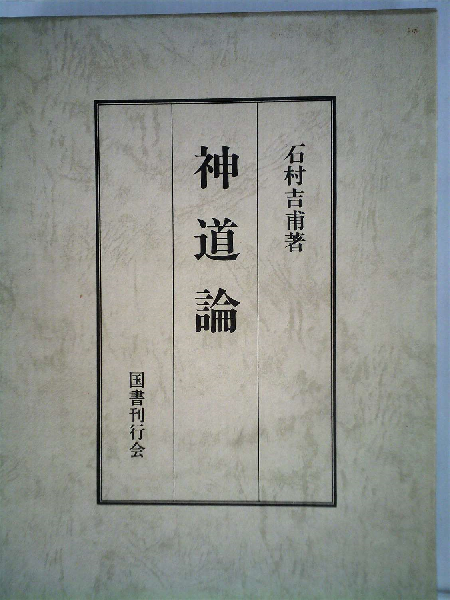 石村吉甫著
神道論
国書刊行会